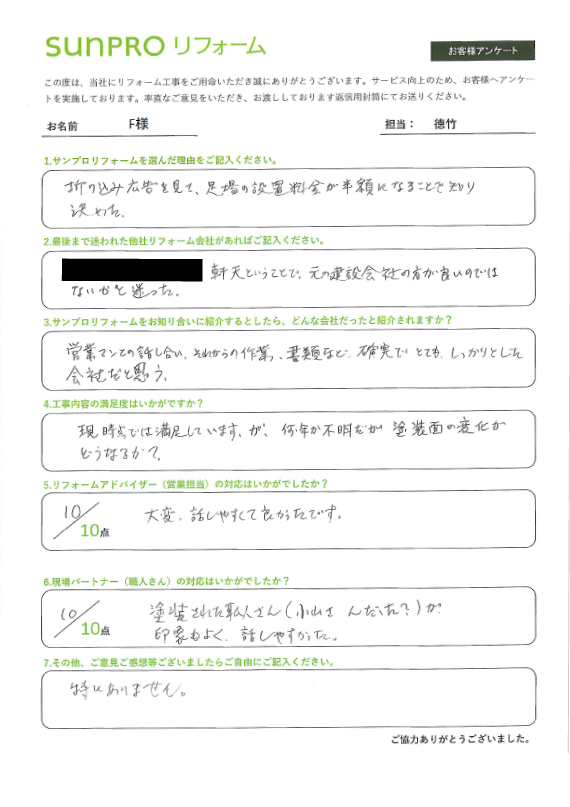 SUNPRO リフォーム
お客様アンケート
この度は、当社にリフォーム工事をご用命いただき誠にありがとうございます。サービス向上のため、お客様へアンケー
トを実施しております。率直なご意見をいただき、お渡ししております返信用封筒にてお送りください。
お名前 F様 担当： 徳竹
1.サンプロリフォームを選んだ理由をご記入ください。
折り込み広告を見て、足場の設置料金が半額になることで知り
決めた。
2.最後まで迷われた他社リフォーム会社があればご記入ください。
軒天ということで、元の建設会社の方が良いのでは
ないかと迷った。
3.サンプロリフォームをお知り合いに紹介するとしたら、どんな会社だったと紹介されますか？
営業マンとの話し合い、それからの作業、書類など、確実でとても、しっかりとした
会社だと思う。
4.工事内容の満足度はいかがですか？
現時点では満足しています、が、何年か不明だが塗装面の変化が
どうなるか？、
5.リフォームアドバイザー（営業担当）の対応はいかがでしたか？
10／10点 大変、話しやすくて良かったです。
6.現場パートナー（職人さん）の対応はいかがでしたか？
10／10点 塗装された職人さん(小山さんだった？)が
印象もよく、話しやすかった。
7.その他、ご意見ご感想等ございましたらご自由にご記入ください。
特にありません。
ご協力ありがとうございました。